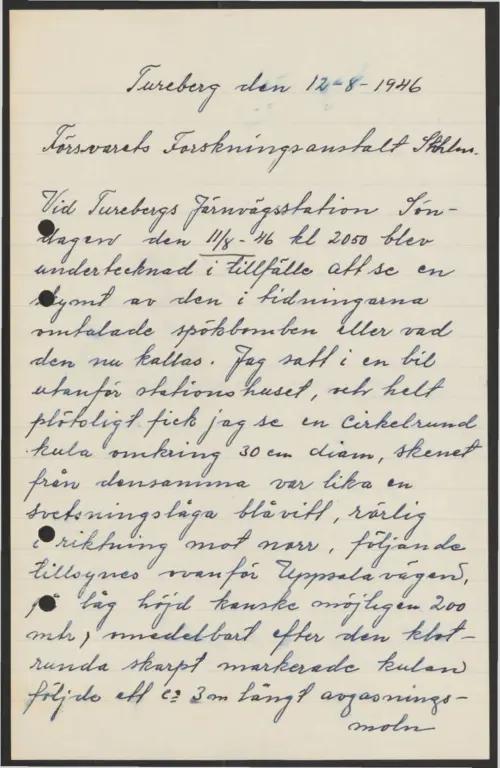 Tureberg den 12-8-1946
Försvarets Forskningsanstalt Sthlm.
Vid Turebergs Järnvägsstation Sön-
dagen den 11/8-46 kl 2050 blev
undertecknad i tillfälle att se en
skymt av den i tidningarna
omtalade spökbomben eller vad
den nu kallas. Jag satt i en bil
utanför stationshuset, och helt
plötsligt fick jag se en Cirkelrund
kula omkring 30 cm diam, skenet
från densamma var lika en
svetsningslåga blåvitt, rörlig
i riktning mot norr, följande
tillsynes ovanför Uppsalavägen,
på låg höjd kanske möjligen 200
mtr, omedelbart efter den klot-
runda skarpt markerade kulan
följde ett c:a 3 m långt avgasnings-
moln